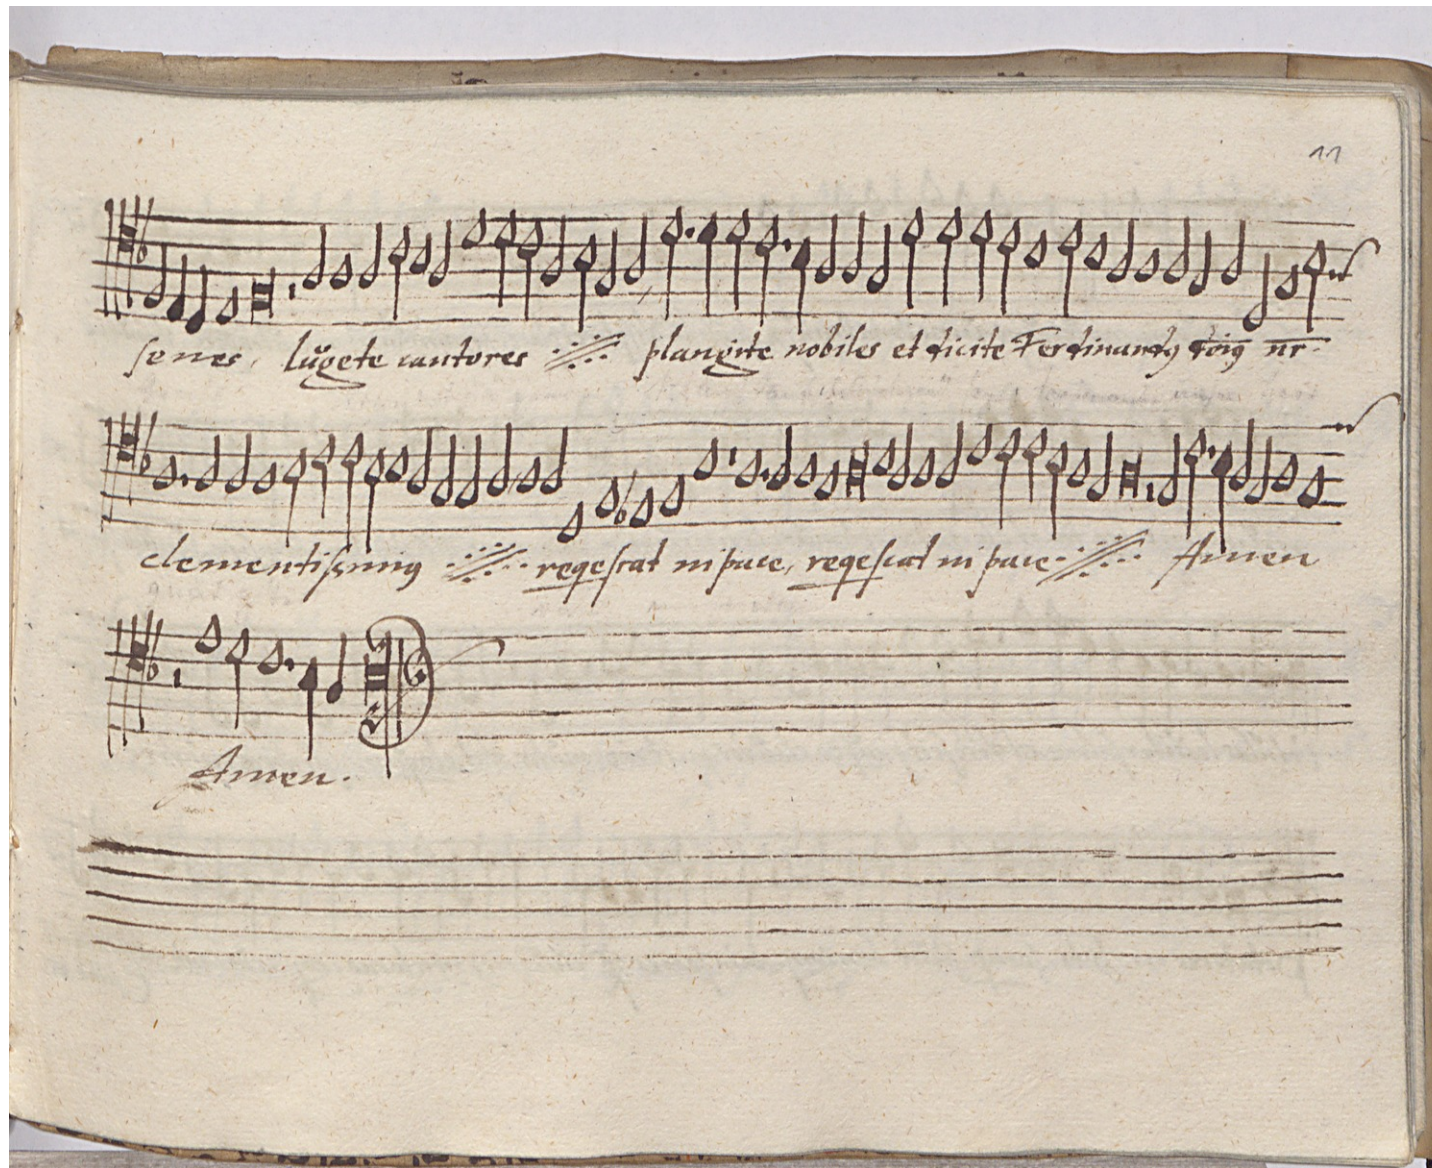 11
senes, lŭgete cantores ·//· plangite nobiles et dicite Ferdinandꝰ dn̄ꝰ nr̄·
clementissimꝰ ·//· reqescat in pace, reqescat in pace ·//· Amen
Amen.